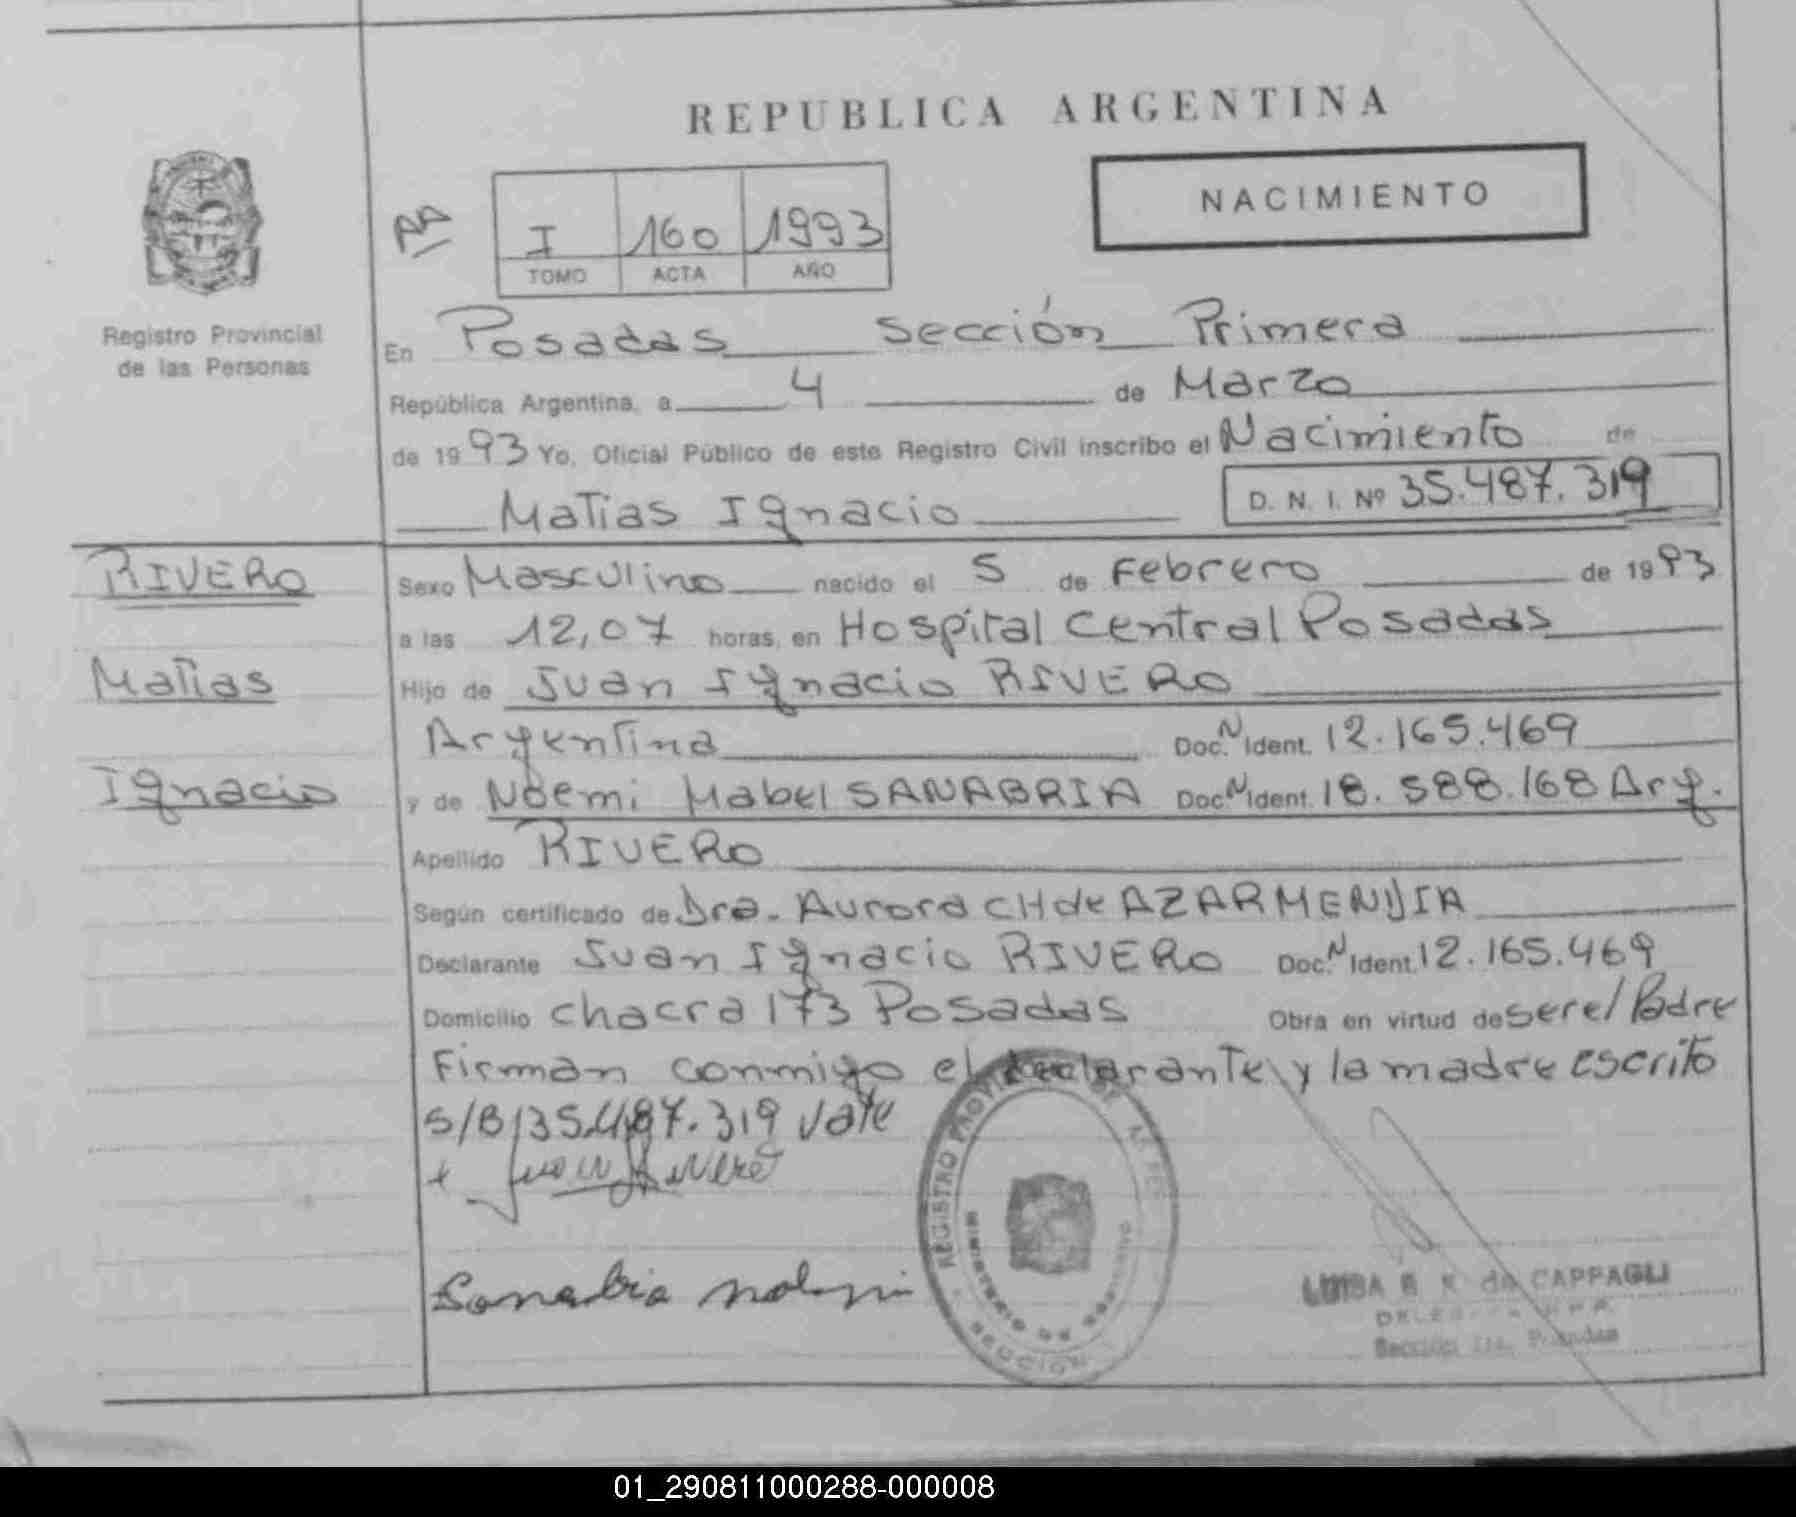 REPUBLICA ARGENTINA
NACIMIENTO
AA
I 160 1993
TOMO ACTA AÑO
Registro Provincial
de las Personas
En Posadas Sección Primera
República Argentina, a 4 de Marzo
de 1993 Yo, Oficial Público de este Registro Civil inscribo el Nacimiento de
Matias Ignacio D. N. I. Nº 35.487.319
RIVERO
Sexo Masculino nacido el 5 de Febrero de 1993
a las 12,07 horas, en Hospital Central Posadas
Matias
Hijo de Juan Ignacio RIVERO
Argentina Doc. N Ident. 12.165.469
Ignacio
y de Noemi Mabel SANABRIA Doc. N Ident. 18.588.168 Arg.
Apellido RIVERO
Según certificado de Dra. Aurora CH de AZARMENDIA
Declarante Juan Ignacio RIVERO Doc. N Ident. 12.165.469
Domicilio Chacra 173 Posadas Obra en virtud de ser el Padre
Firman conmigo el declarante y la madre escrito
S/B/35.487.319 Vale
Juan Rivero
Sanabria Noemi
REGISTRO
MINISTERIO DE
SECCION
LUISA de CAPPAGLI
Sección 1ra. Posadas
01_290811000288-000008